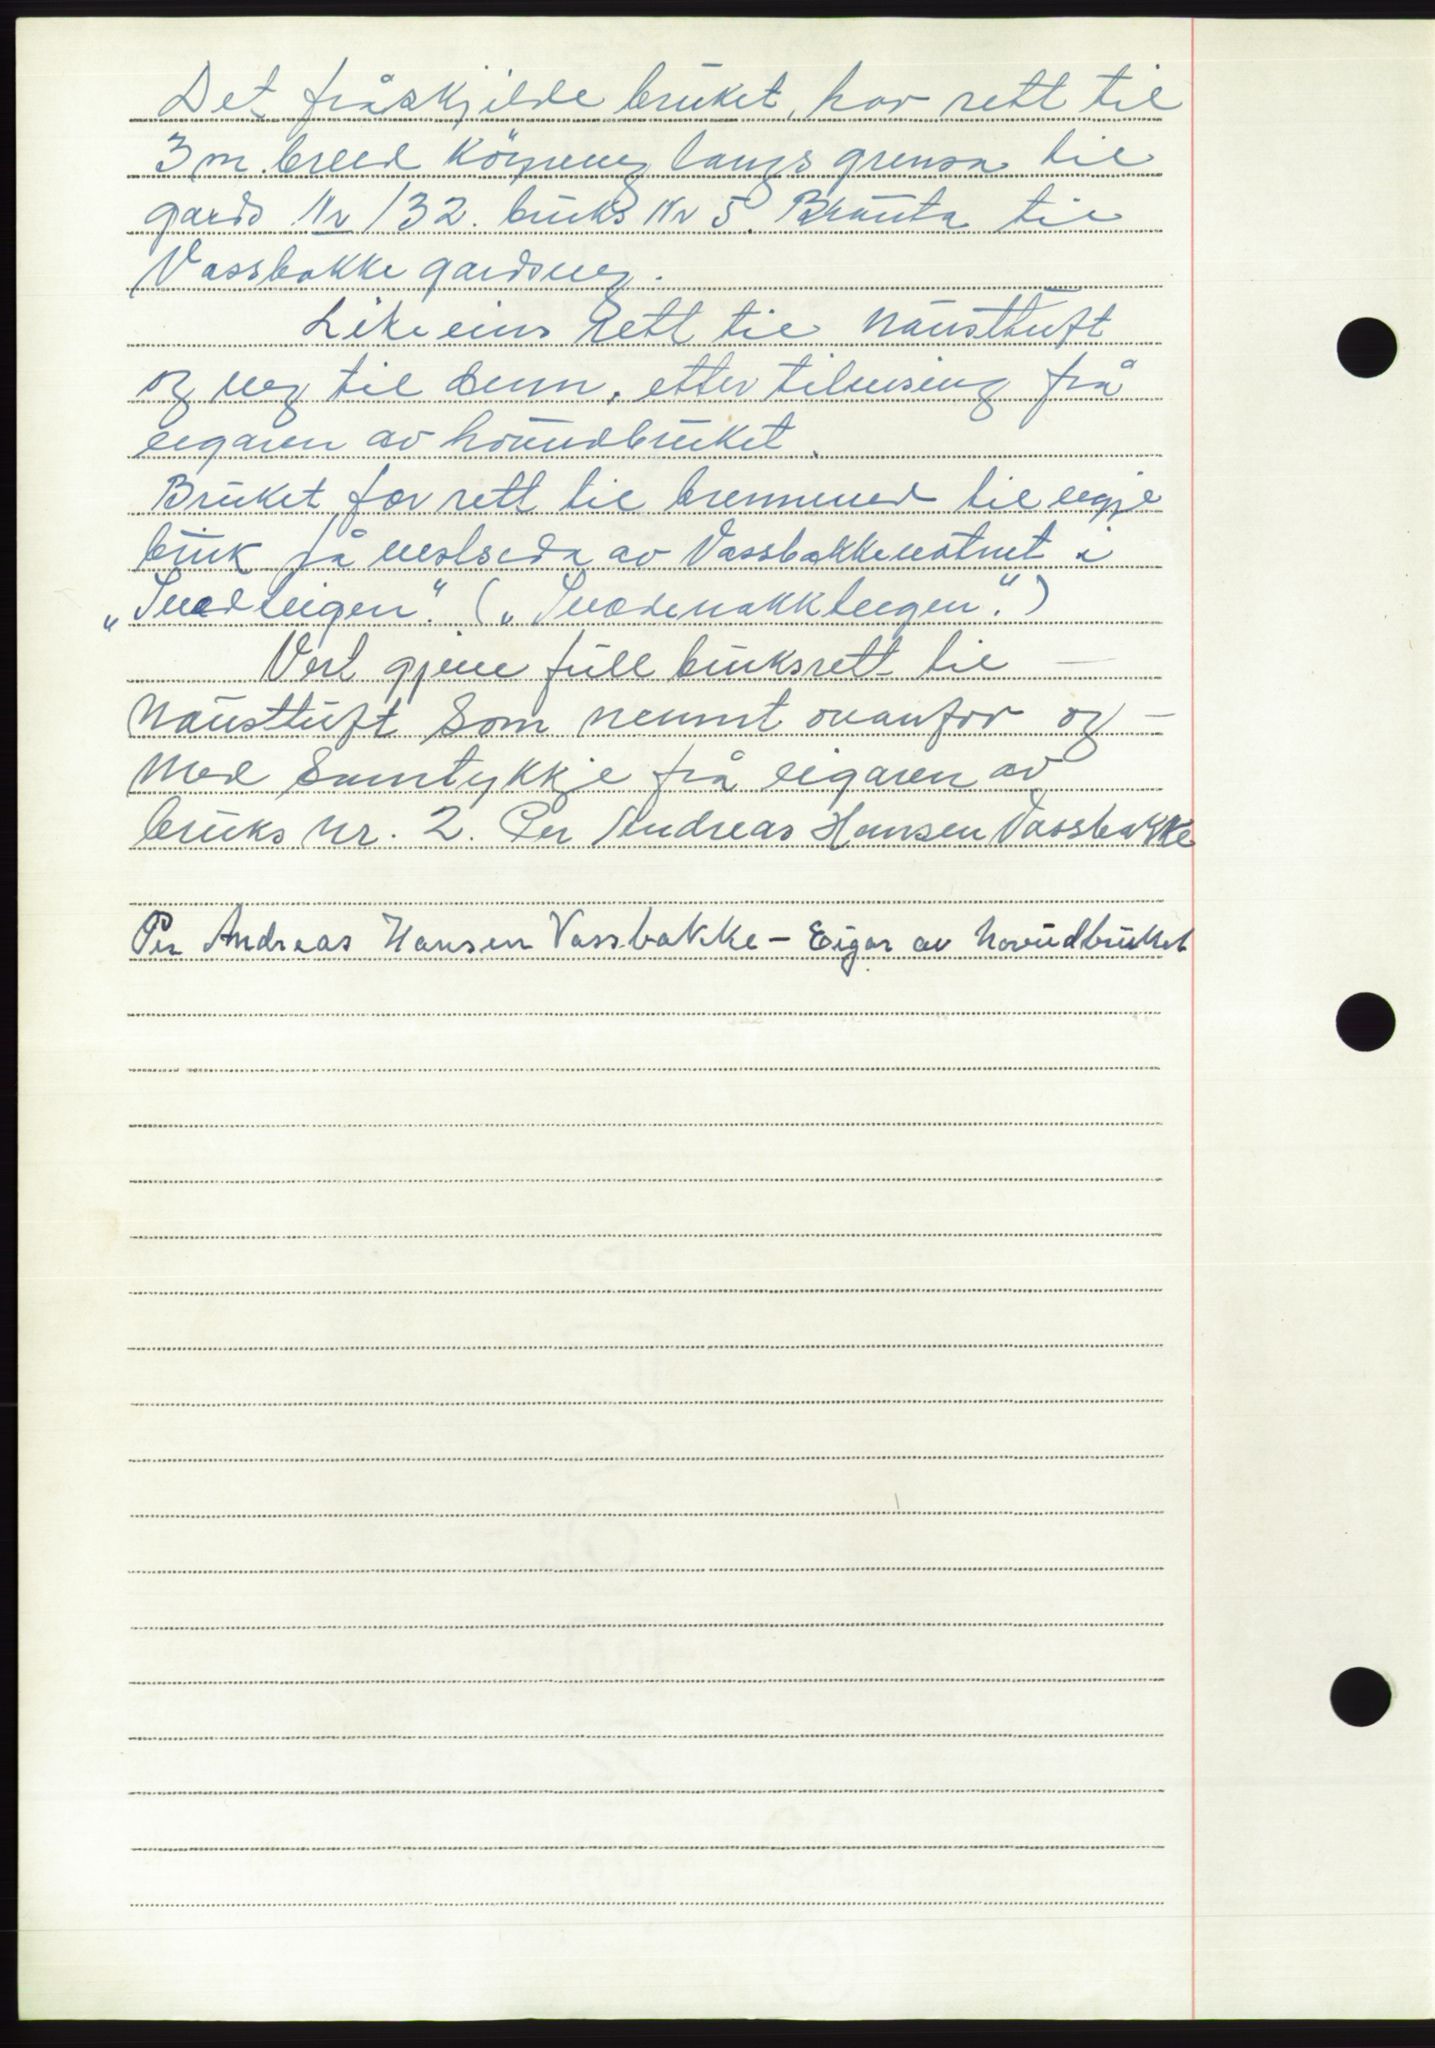 Det fråskjilde bruket, har rett til
3 m. breid köyreveg langs grensa til
gards Nr 132. bruks Nr 5. Brauta til
Vassbakke gardsveg.
Likeeins rett til nausttuft
og veg til denn, etter tilvising frå
eigaren av hovudbruket.
Bruket får rett til brenneved til eigje
bruk på vestsida av Vassbakkevatnet i
„Svadteigen". („Svadenakkteigen".)
Vert gjeve full bruksrett til —
nausttuft som nemnt ovanfor og —
med Samtykkje frå eigaren av
bruks nr. 2. Per Andreas Hansen Vassbakke
Per Andreas Hansen Vassbakke – Eigar av hovudbruket